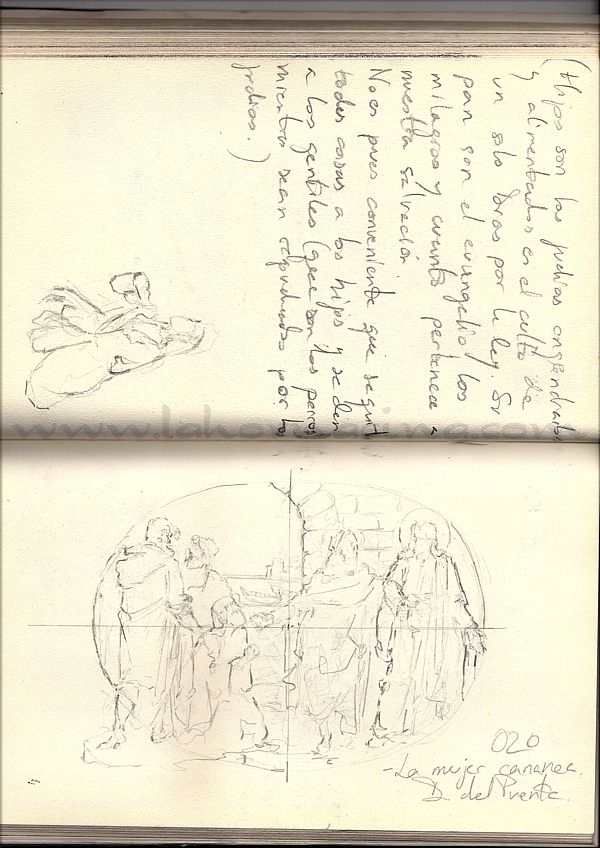 (Hijos son los judios engendrados
y alimentados en el culto de
un solo Dios por la ley. Su
pan son el evangelio, los
milagros y cuanto pertenece a
nuestra salvación.
No es pues conveniente que se quit
todas cosas a los hijos y se den
a los gentiles (que son los perros
mientras sean repudiados por los
judios.)
020
- La mujer cananea.
D. del Puente.